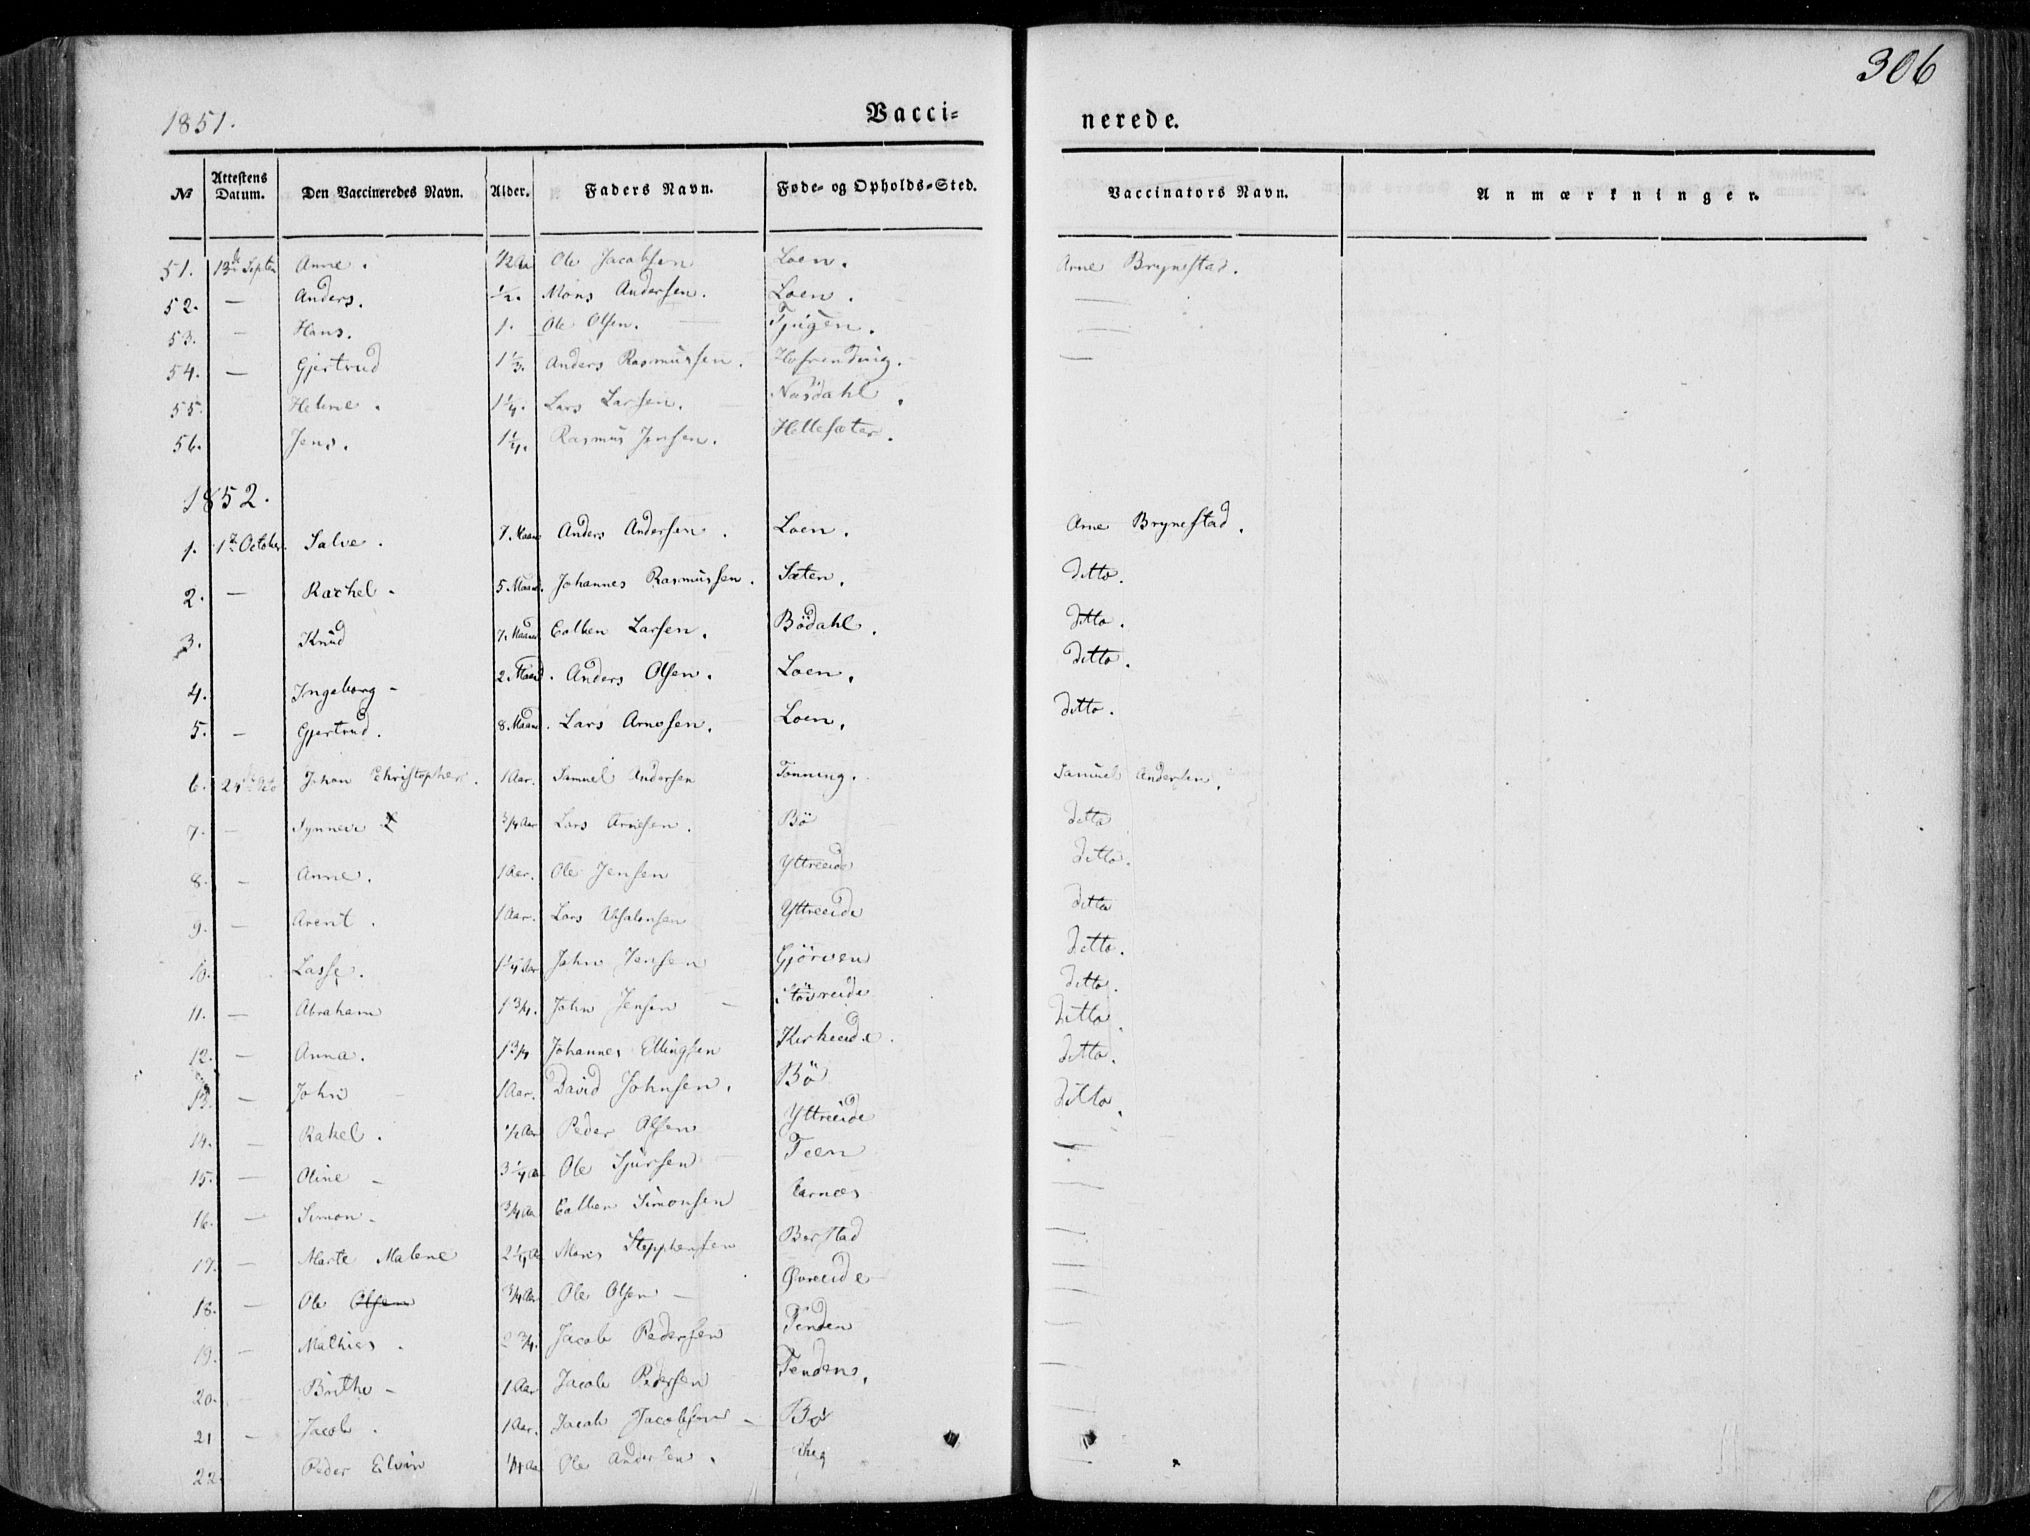 306
1851.
Vacci-nerede.
No Attestens Datum. Den Vaccineredes Navn. Alder. Faders Navn. Føde- og Opholds-Sted. Vaccinators Navn. Anmærkninger.
51. 13de Septem Anne. 1/2 Aar Ole Jacobsen Loen. Arne Brynestad.
52. — Anders. 1/2. Mons Andersen. Loen. —
53. — Hans. 1. Ole Olsen. Tjugen. —
54. — Gjertrud 1 1/3. Anders Rasmussen. —
55. Helene. 1 1/4. Lars Larsen. Nosdahl.
56. Jens. 1 1/4. Rasmus Jensen. Hellesæter.
1852.
1. 1ste October. Salve. 7. Maan Anders Andersen. Loen. Arne Brynestad.
2. — Rachel. 5 Maan. Johannes Rasmussen. Sæten. ditto.
3. Knud 7. Maan Colben Larsen. Bödahl. ditto.
4. Ingeborg 2. Maan. Anders Olsen. Loen. ditto.
5. — Gjertrud. 8 Maan. Lars Arnesen. Loen. ditto.
6. 24de Johan Christopher. 1 Aar. Samuel Andersen Tonning. Samuel Andersen.
7. — Synneve 3/4 Aar Lars Arnesen. Bö ditto
8. — Anne. 1 Aar. Ole Jensen Yttreeide ditto.
9. — Arent. 1 Aar. Lars Absalonsen Yttreeide ditto
10. Lasse. 1 1/4 Aar John Jensen Gjörven ditto.
11. — Abraham 1 3/4. John Jensen Stövreide ditto.
12. — Anna. 1 3/4 Johannes Ellingsen Kirkeeide. ditto.
13. — John 1 Aar. David Johnsen. Bö ditto.
14. — Rakel. 1/2 Aar Peder Olsen Yttreeide ditto.
15. — Oline 3 1/4 Aa Ole Sjursen Teen —
16. — Simon 3/4 Aa Colben Simonsen —
17. — Marte Malene 2 1/4 Aa Mons Stepphensen Berstad —
18. — Ole Olsen 3/4 Aar Ole Olsen Øvreeide —
19. Mathias. 2 3/4. Jacob Pedersen Tenden —
20. — Brithe 1 Aar Jacob Pedersen Tenden, —
21 — Jacob. 1 Aar. Jacob Jacobsen Bö —
22. Peder Elvin Ole Andersen.